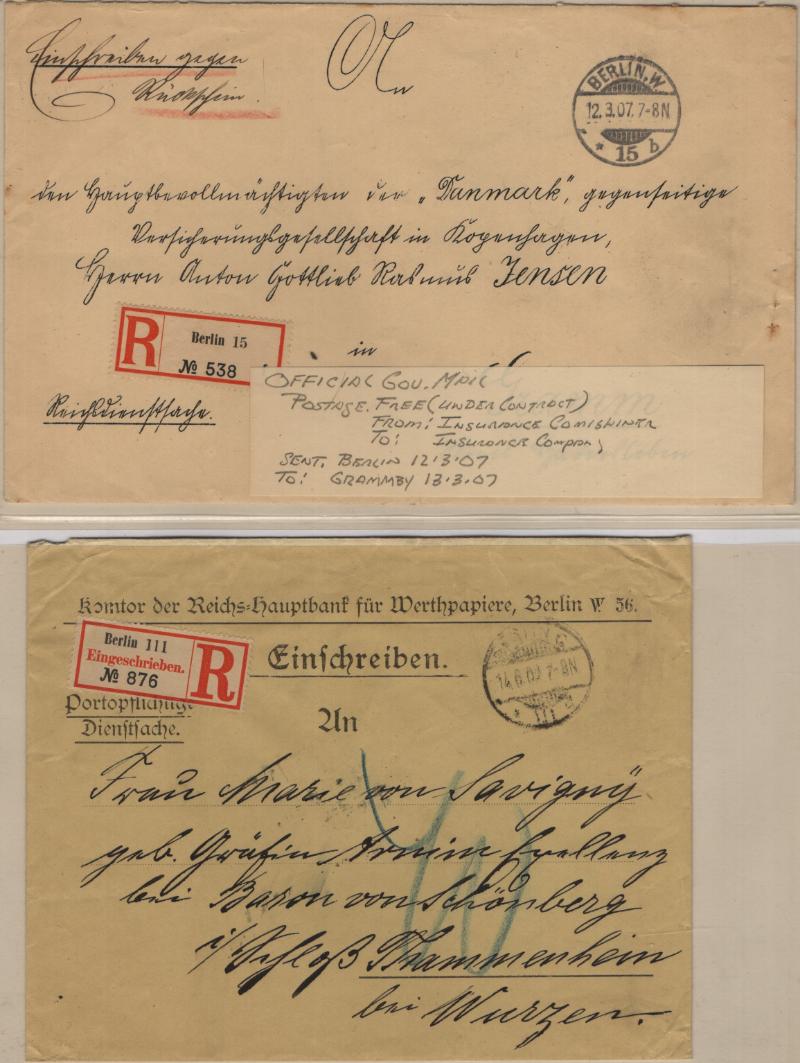 Einschreiben gegen
Rückschein.
An
BERLIN. W.
12.3.07. 7-8N
* 15 b
den Hauptbevollmächtigten der „Danmark", gegenseitige
Versicherungsgesellschaft in Kopenhagen,
Herrn Anton Gottlieb Rasmus Jensen
R
Berlin 15
№ 538
in
Reichsdienstsache.
OFFICIAL GOV. MAIL
POSTAGE FREE (UNDER CONTRACT)
FROM: INSURANCE COMISHINER
TO: INSURANCE COMPANY
SENT. BERLIN 12·3·07
TO: GRAMMBY 13·3·07
Komtor der Reichs-Hauptbank für Werthpapiere, Berlin W 56.
Berlin 111
Eingeschrieben.
№ 876
R
Einschreiben.
7-8N
Portopflichtige
Dienstsache.
An
Frau Marie von Savigny
geb. Gräfin Arnim Exellenz
bei Baron von Schönberg
i/Schloß Thammenhein
bei Wurzen.